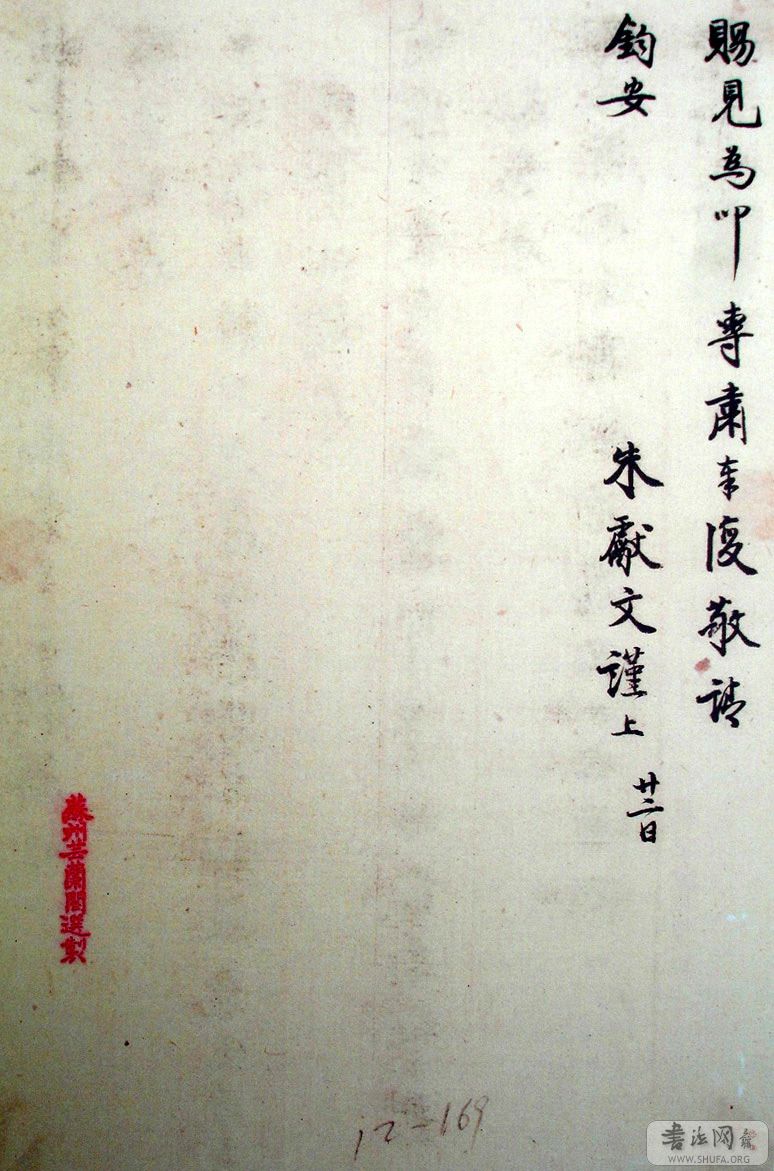 賜見為叩專肅奉復敬請
鈞安
朱獻文謹上 廿二日
蘇州芸蘭閣選製
12-169
書法网
WWW.SHUFA.ORG